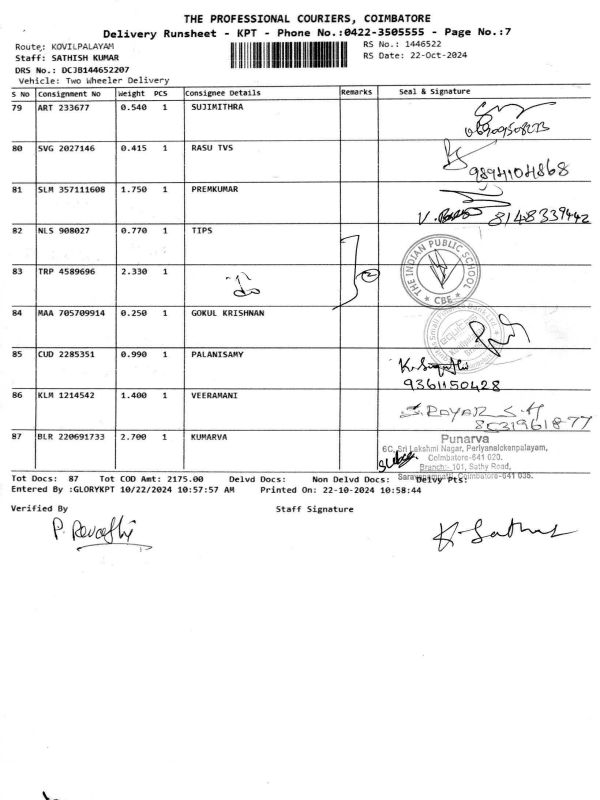 THE PROFESSIONAL COURIERS, COIMBATORE
Delivery Runsheet - KPT - Phone No.:0422-3505555 - Page No.:7
Route; KOVILPALAYAM RS No.: 1446522
Staff: SATHISH KUMAR RS Date: 22-Oct-2024
DRS No.: DCJB144652207
Vehicle: Two Wheeler Delivery
S No Consignment No Weight PCS Consignee Details Remarks Seal & Signature
79 ART 233677 0.540 1 SUJIMITHRA
80 SVG 2027146 0.415 1 RASU TVS
9894104868
81 SLM 357111608 1.750 1 PREMKUMAR
8148339442
82 NLS 908027 0.770 1 TIPS
THE INDIAN PUBLIC SCHOOL
★ CBE ★
83 TRP 4589696 2.330 1
2
84 MAA 705709914 0.250 1 GOKUL KRISHNAN
85 CUD 2285351 0.990 1 PALANISAMY
9361150428
86 KLM 1214542 1.400 1 VEERAMANI
87 BLR 220691733 2.700 1 KUMARVA
Punarva
6C, Sri Lakshmi Nagar, Periyanaickenpalayam,
Coimbatore-641 020.
Branch:- 101, Sathy Road,
Saravanampatti, Coimbatore-641 035.
Tot Docs: 87 Tot COD Amt: 2175.00 Delvd Docs: Non Delvd Docs: Delvy Pts:
Entered By :GLORYKPT 10/22/2024 10:57:57 AM Printed On: 22-10-2024 10:58:44
Verified By Staff Signature